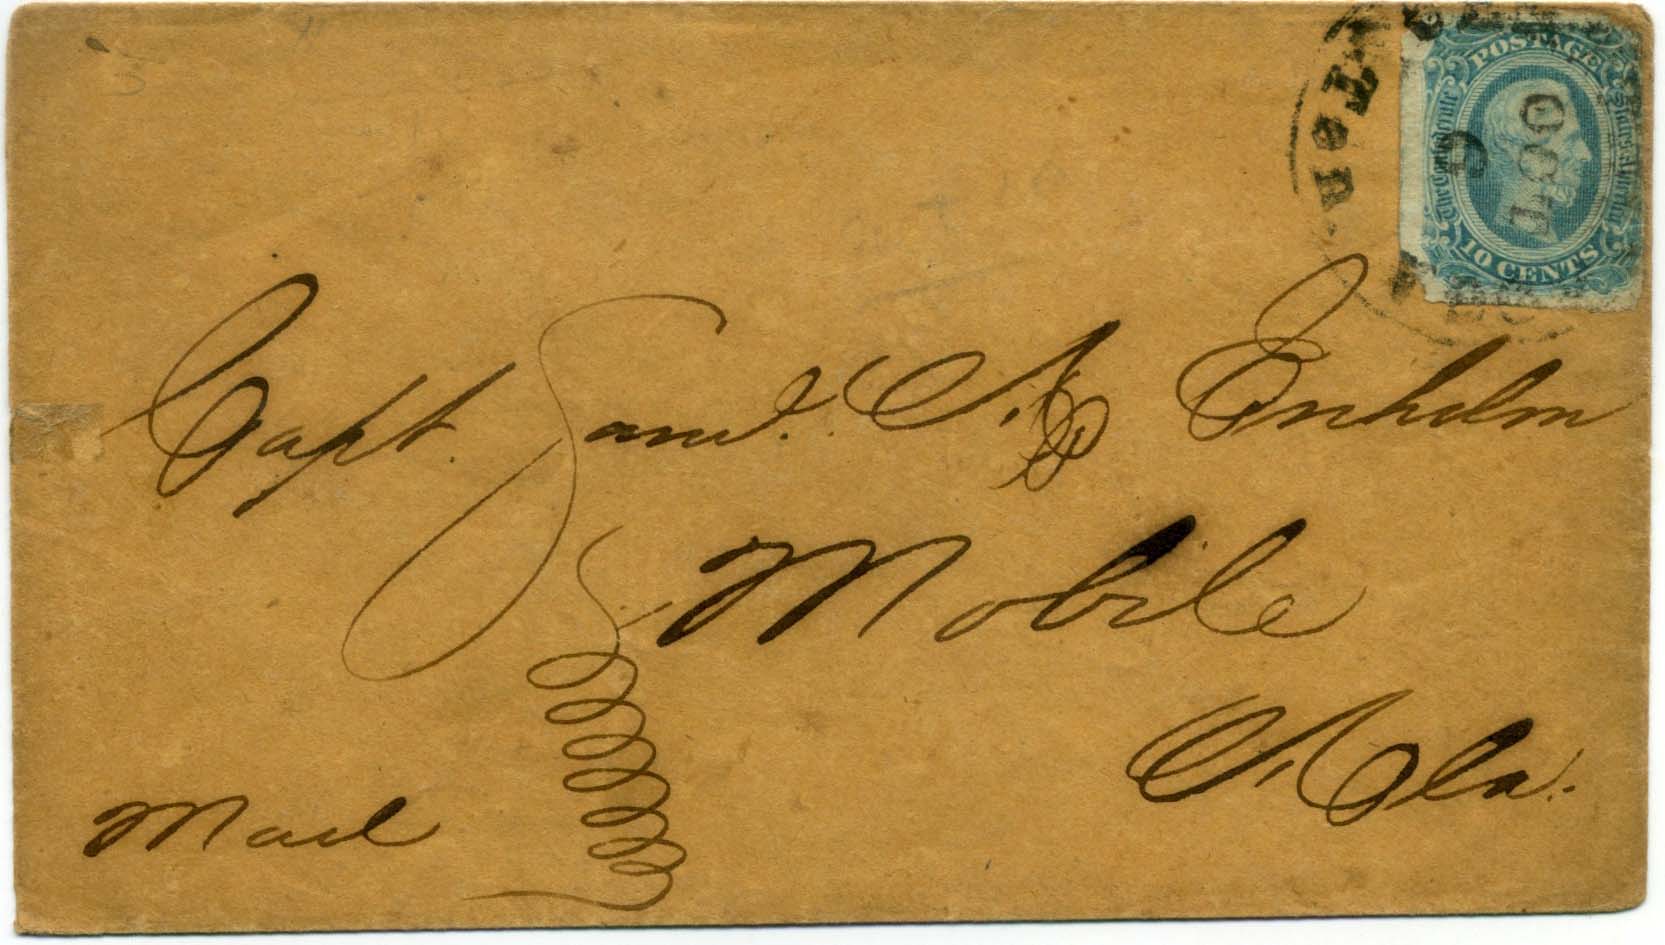 POSTAGE
The Confederate States of America
10 CENTS
OCT
Capt. Saml. A. Enholm
Mobile
Ala.
Mail